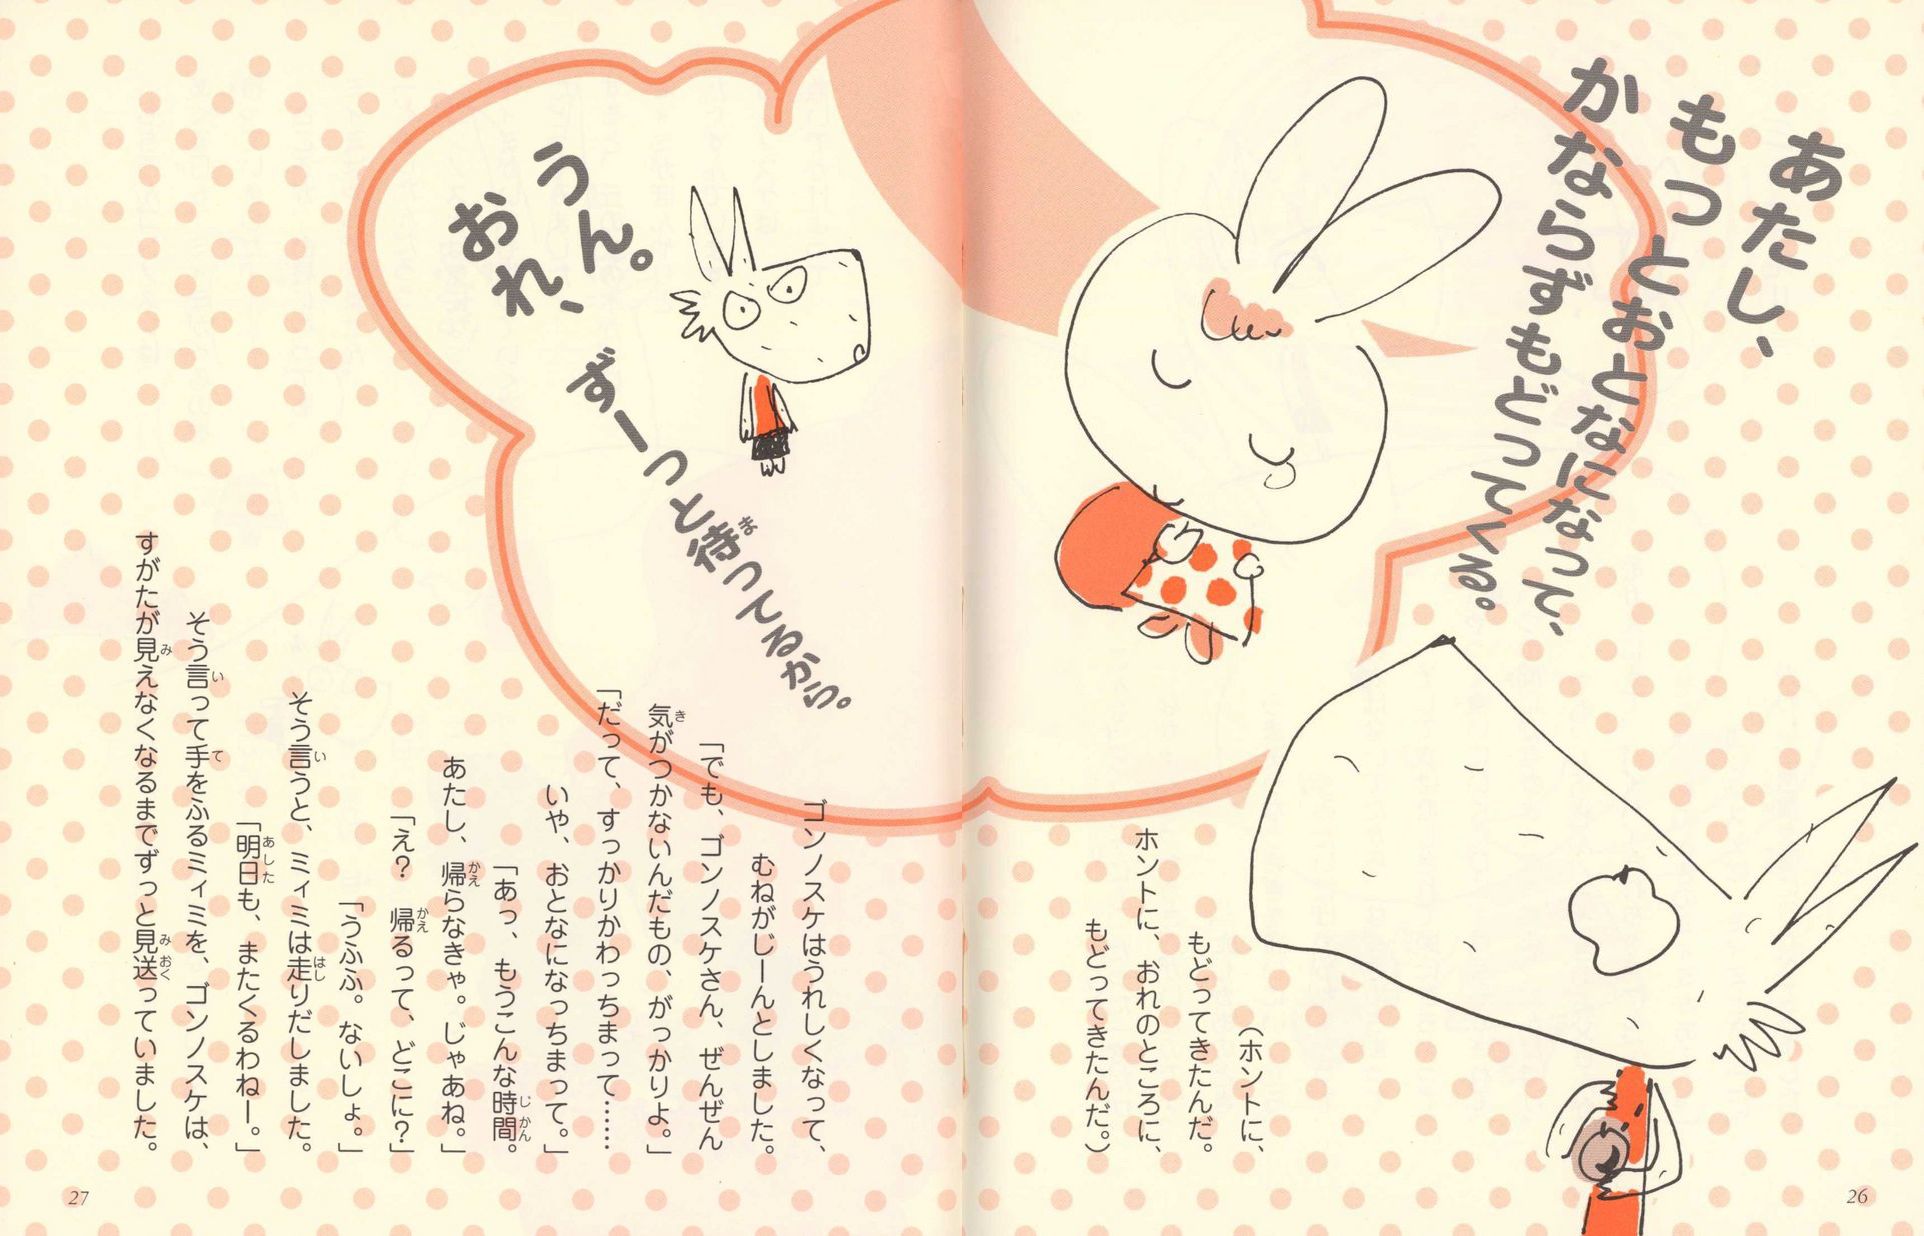 あたし、
もっとおとなになって、
かならずもどってくる。
うん。
おれ、
ずーっと待ってるから。
(ホントに、
もどってきたんだ。
ホントに、おれのところに、
もどってきたんだ。)
26
ゴンノスケはうれしくなって、
むねがじーんとしました。
「でも、ゴンノスケさん、ぜんぜん
気がつかないんだもの、がっかりよ。」
「だって、すっかりかわっちまって……
いや、おとなになっちまって。」
「あっ、もうこんな時間。
あたし、帰らなきゃ。じゃあね。」
「え? 帰るって、どこに?」
「うふふ。ないしょ。」
そう言うと、ミィミは走りだしました。
「明日も、またくるわねー。」
そう言って手をふるミィミを、ゴンノスケは、
すがたが見えなくなるまでずっと見送っていました。
27